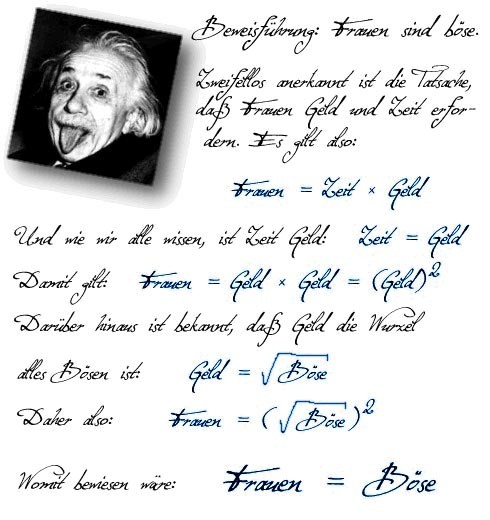 Beweisführung: Frauen sind böse.
Zweifellos anerkannt ist die Tatsache,
daß Frauen Geld und Zeit erfor-
dern. Es gilt also:
Frauen = Zeit × Geld
Und wie wir alle wissen, ist Zeit Geld: Zeit = Geld
Damit gilt: Frauen = Geld × Geld = (Geld)²
Darüber hinaus ist bekannt, daß Geld die Wurzel
alles Bösen ist: Geld = √Böse
Daher also: Frauen = (√Böse)²
Womit bewiesen wäre: Frauen = Böse